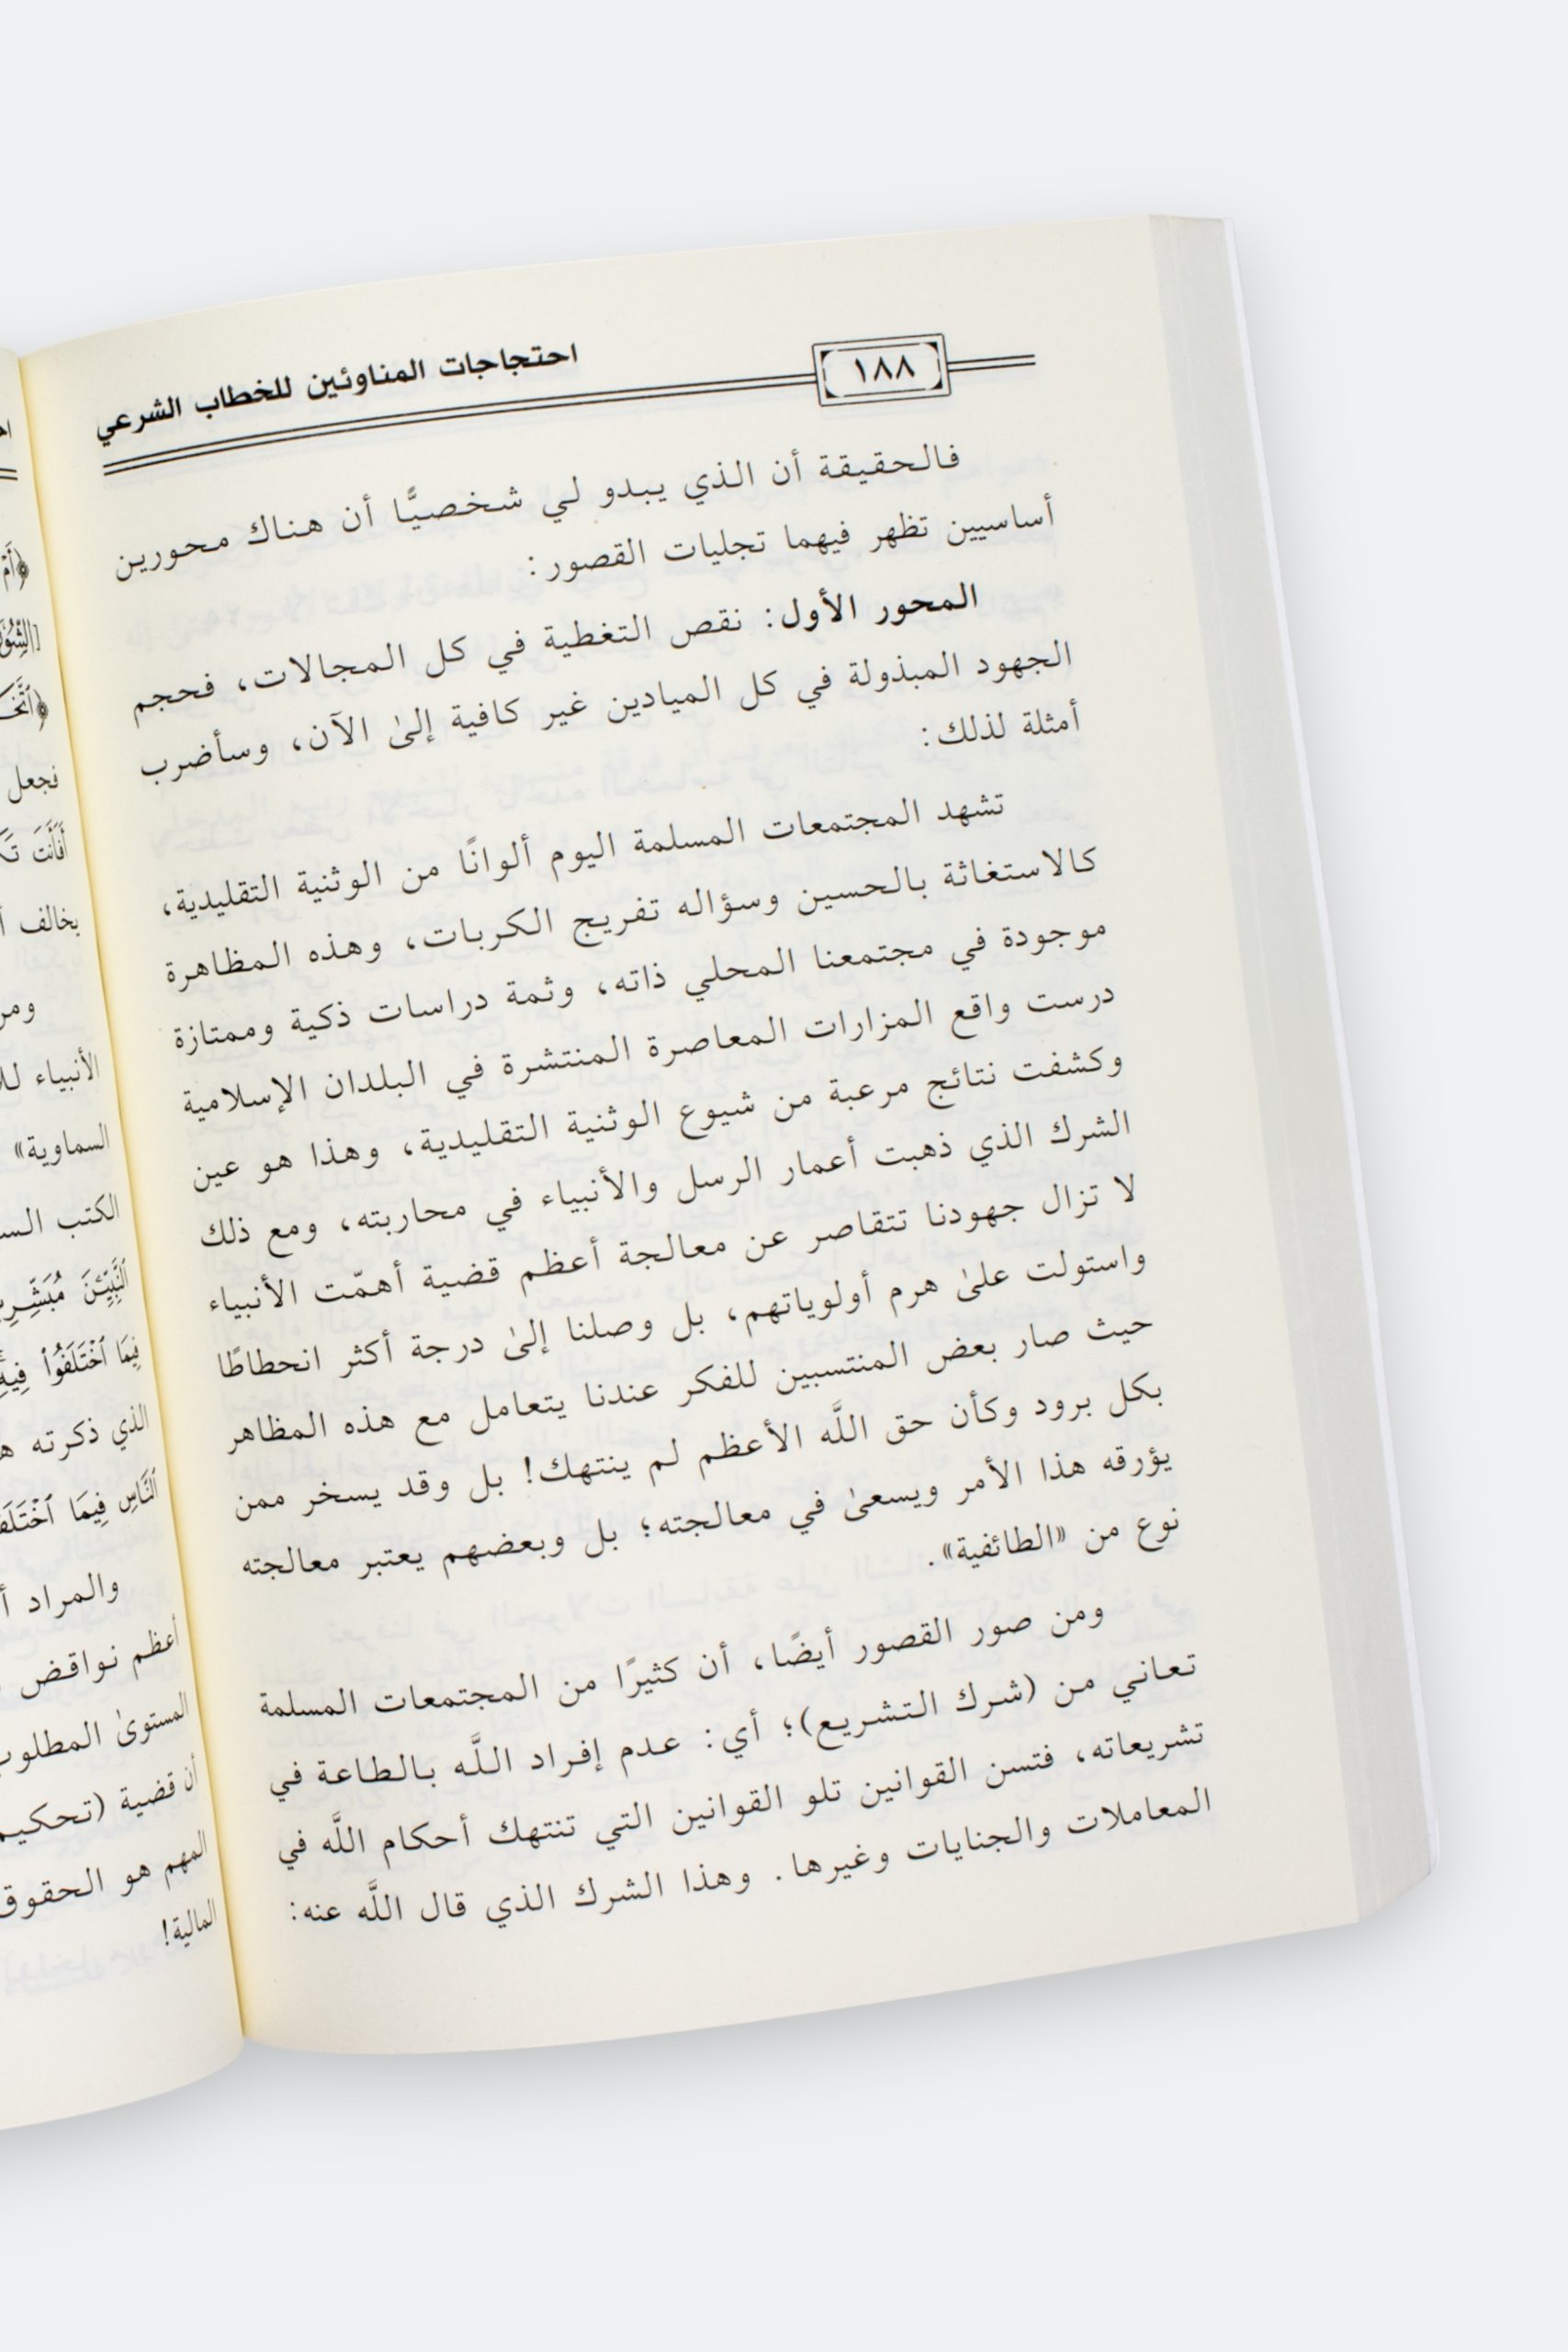 ١٨٨
احتجاجات المناوئين للخطاب الشرعي
فالحقيقة أن الذي يبدو لي شخصيًّا أن هناك محورين
أساسيين تظهر فيهما تجليات القصور:
المحور الأول: نقص التغطية في كل المجالات، فحجم
الجهود المبذولة في كل الميادين غير كافية إلىٰ الآن، وسأضرب
أمثلة لذلك:
تشهد المجتمعات المسلمة اليوم ألوانًا من الوثنية التقليدية،
كالاستغاثة بالحسين وسؤاله تفريج الكربات، وهذه المظاهرة
موجودة في مجتمعنا المحلي ذاته، وثمة دراسات ذكية وممتازة
درست واقع المزارات المعاصرة المنتشرة في البلدان الإسلامية
وكشفت نتائج مرعبة من شيوع الوثنية التقليدية، وهذا هو عين
الشرك الذي ذهبت أعمار الرسل والأنبياء في محاربته، ومع ذلك
لا تزال جهودنا تتقاصر عن معالجة أعظم قضية أهمّت الأنبياء
واستولت علىٰ هرم أولوياتهم، بل وصلنا إلىٰ درجة أكثر انحطاطًا
حيث صار بعض المنتسبين للفكر عندنا يتعامل مع هذه المظاهر
بكل برود وكأن حق اللَّه الأعظم لم ينتهك! بل وقد يسخر ممن
يؤرقه هذا الأمر ويسعىٰ في معالجته؛ بل وبعضهم يعتبر معالجته
نوع من «الطائفية».
ومن صور القصور أيضًا، أن كثيرًا من المجتمعات المسلمة
تعاني من (شرك التشريع)؛ أي: عدم إفراد اللَّه بالطاعة في
تشريعاته، فتسن القوانين تلو القوانين التي تنتهك أحكام اللَّه في
المعاملات والجنايات وغيرها. وهذا الشرك الذي قال اللَّه عنه:
نجعل
أَفَأَنتَ
بخالف
الأنبياء
السماوية»
الكتب
ٱلنَّبِيِّـۧنَ مُبَشِّرِ
فِيمَا ٱخْتَلَفُوا۟ فِيهِ
الذي ذكرته
ٱلنَّاسِ فِيمَا
والمراد
أعظم نواقض
المستوىٰ المطلوب
أن قضية (تحكيم
المهم هو الحقوق
المالية!